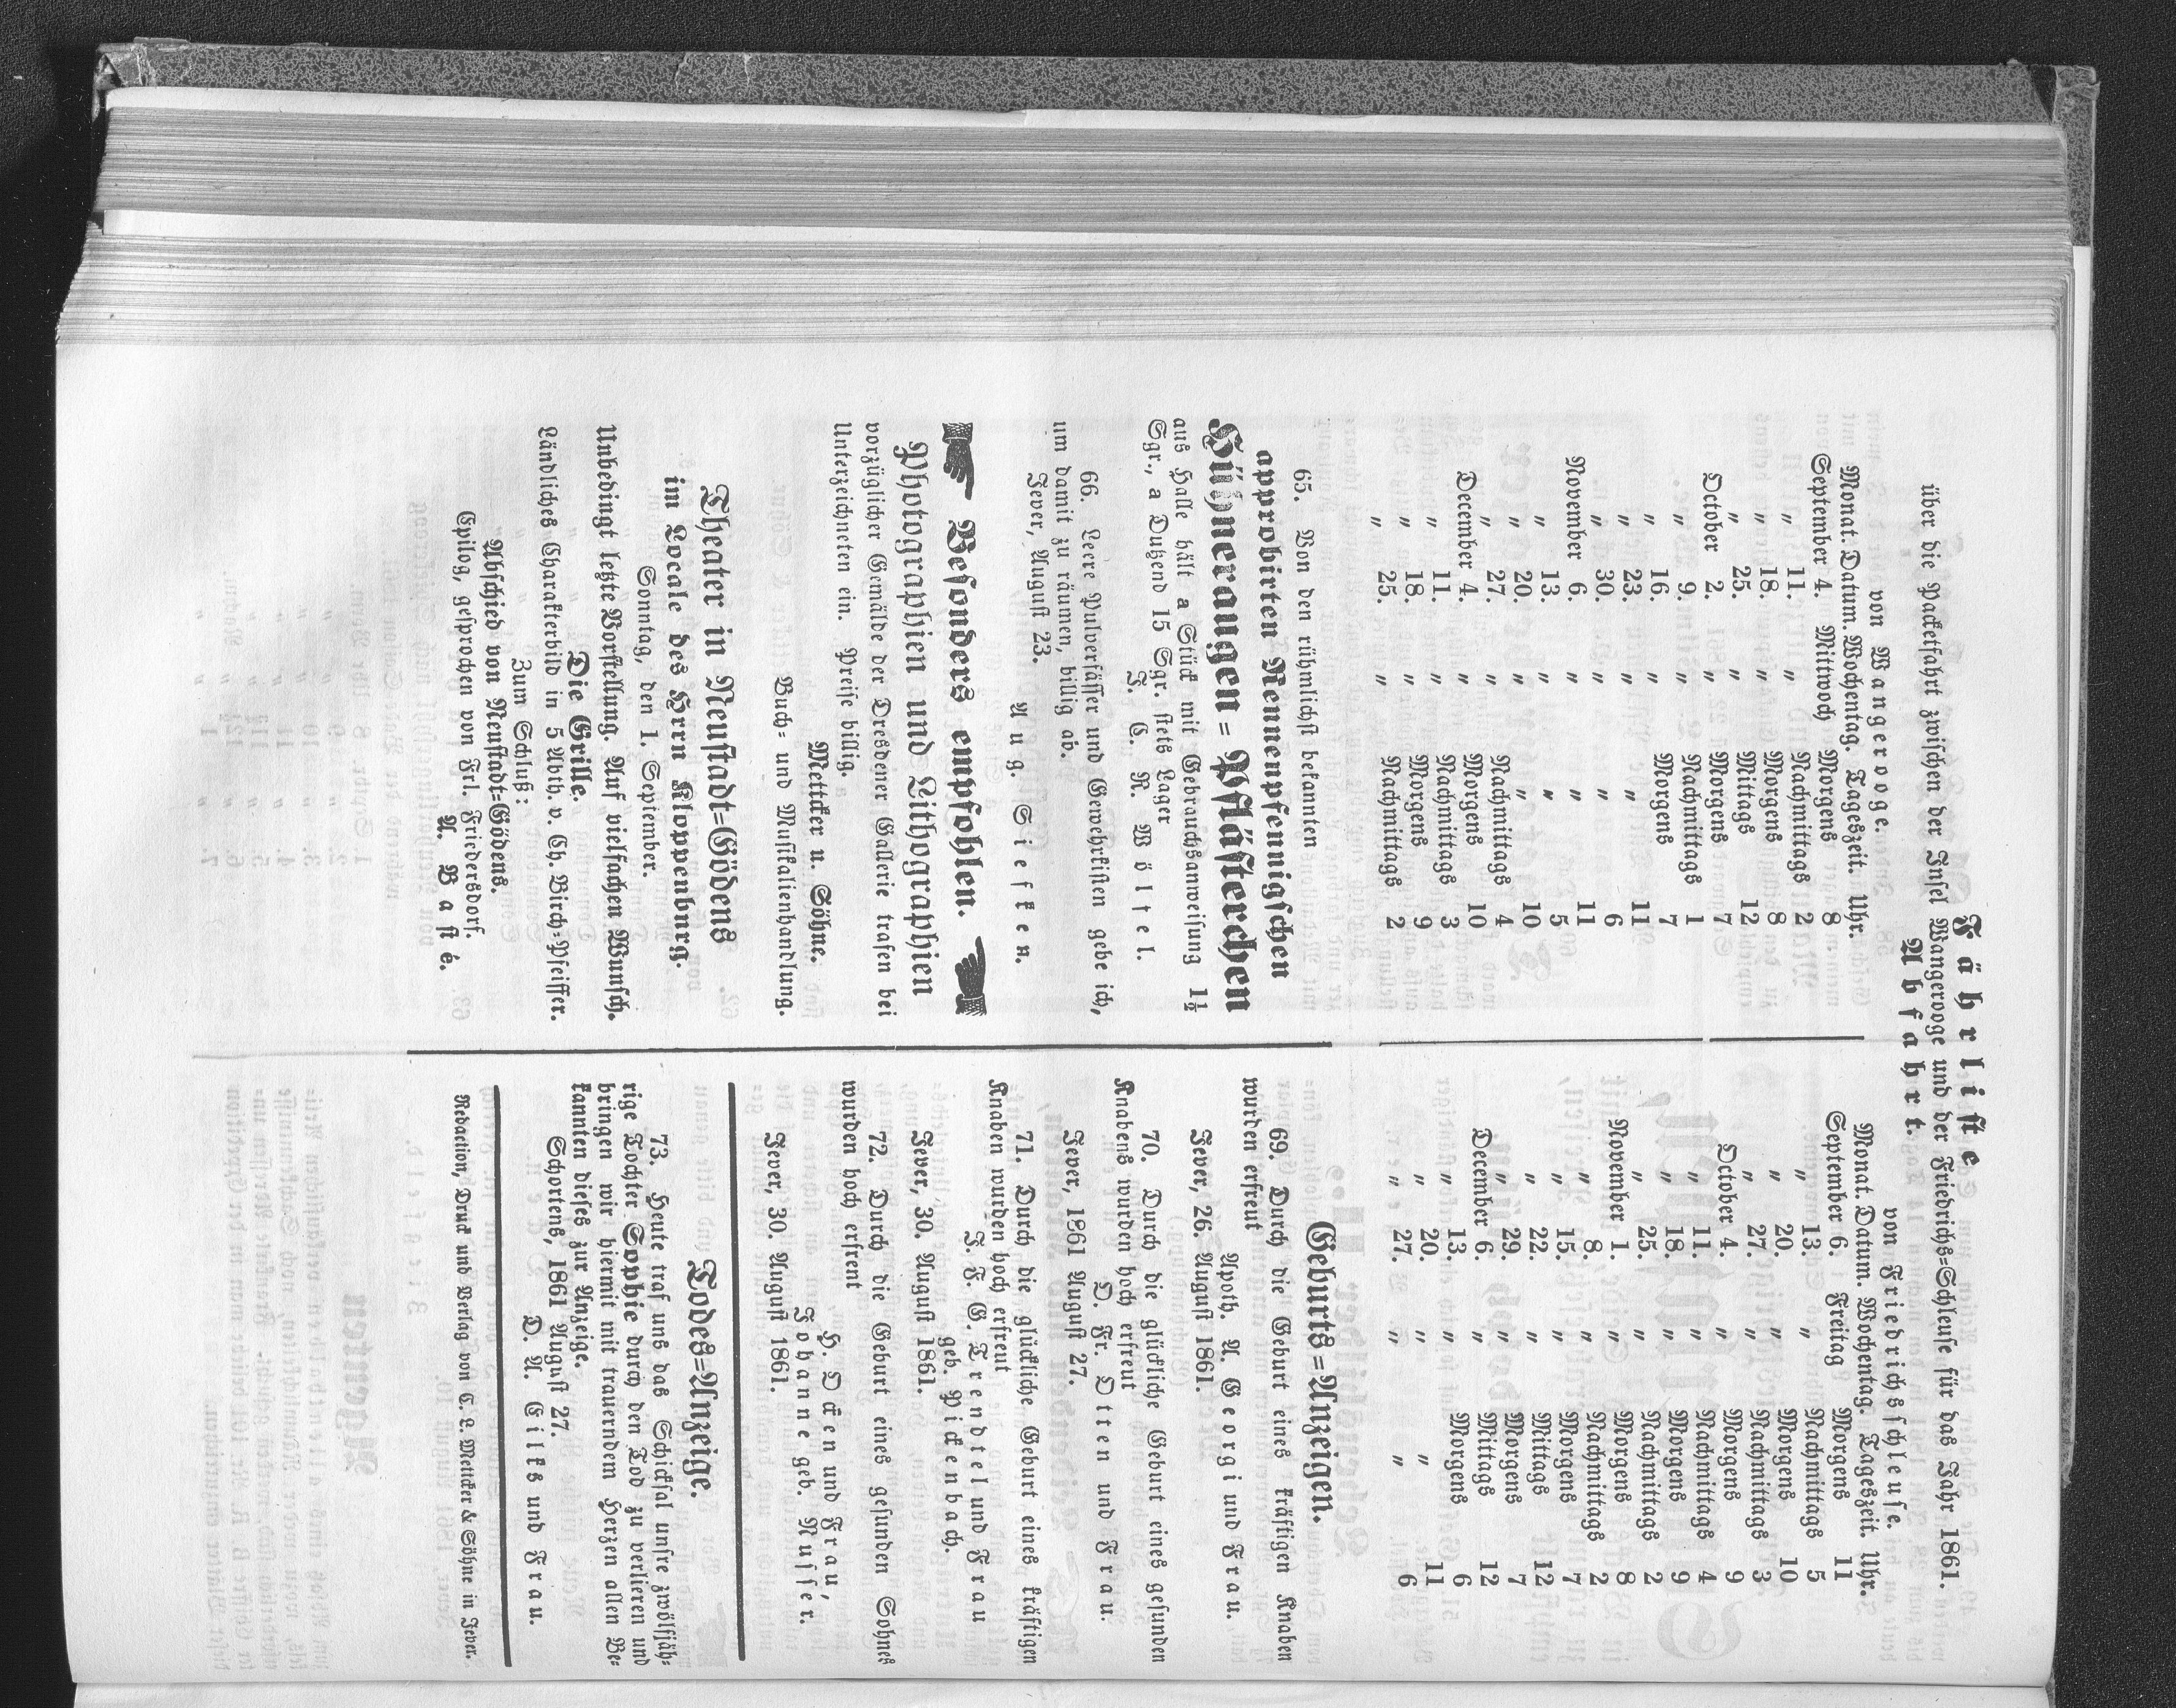 Fährliste
über die Packetfahrt zwischen der Insel Wangerooge und der Friedrichs=Schleuse für das Jahr 1861.
Abfahrt.
von Wangerooge.
Monat. Datum. Wochentag. Tageszeit. Uhr.
September 4. Mittwoch Morgens 8
„ 11. „ Nachmittags 2
„ 18. „ Morgens 8
„ 25. „ Mittags 12
October 2. „ Morgens 7
„ 9. „ Nachmittags 1
„ 16. „ Morgens 7
„ 23. „ „ 11
„ 30. „ „ 6
November 6. „ „ 11
„ 13. „ „ 5
„ 20. „ „ 10
„ 27. „ Nachmittags 4
December 4. „ Morgens 10
„ 11. „ Nachmittags 3
„ 18. „ Morgens 9
„ 25. „ Nachmittags 2
von Friedrichsschleuse.
Monat. Datum. Wochentag. Tageszeit. Uhr.
September 6. Freitag Morgens 11
„ 13. „ Nachmittags 5
„ 20. „ Morgens 10
„ 27. „ Nachmittags 3
October 4. „ Morgens 9
„ 11. „ Nachmittags 4
„ 18. „ Morgens 9
„ 25. „ Nachmittags 2
November 1. „ Morgens 8
„ 8. „ Nachmittags 2
„ 15. „ Morgens 7
„ 22. „ Mittags 12
„ 29. „ Morgens 7
December 6. „ Mittags 12
„ 13. „ Morgens 6
„ 20. „ „ 11
„ 27. „ „ 6
65. Von den rühmlichst bekannten
approbirten Rennenpfennigschen
Hühneraugen=Pflästerchen
aus Halle hält a Stück mit Gebrauchsanweisung 1½
Sgr., a Dutzend 15 Sgr. stets Lager
J. C. R. Wöltel.
66. Leere Pulverfässer und Gewehrkisten gebe ich,
um damit zu räumen, billig ab.
Jever, August 23.
Aug. Siefken.
Besonders empfohlen.
Photographien und Lithographien
vorzüglicher Gemälde der Dresdener Gallerie trafen bei
Unterzeichneten ein. Preise billig.
Mettcker u. Söhne.
Buch= und Musikalienhandlung.
Theater in Neustadt=Gödens
im Locale des Hrrn Kloppenburg.
Sonntag, den 1. September.
Unbedingt letzte Vorstellung. Auf vielfachen Wunsch.
Die Grille.
Ländliches Charakterbild in 5 Abth. v. Ch. Birch=Pfeiffer.
Zum Schluß:
Abschied von Neustadt=Gödens.
Epilog, gesprochen von Frl. Friedersdorf.
A. Basté.
Geburts=Anzeigen.
69. Durch die Geburt eines kräftigen Knaben
wurden erfreut
Apoth. A. Georgi und Frau.
Jever, 26. August 1861.
70. Durch die glückliche Geburt eines gesunden
Knabens wurden hoch erfreut
D. Fr. Otten und Frau.
Jever, 1861 August 27.
71. Durch die glückliche Geburt eines kräftigen
Knaben wurden hoch erfreut
J. F. G. Trendtel und Frau
geb. Pickenbach.
Jever, 30. August 1861.
72. Durch die Geburt eines gesunden Sohnes
wurden hoch erfreut
H. Ocken und Frau,
Johanne geb. Russer.
Jever, 30. August 1861.
Todes=Anzeige.
73. Heute traf uns das Schicksal unsre zwölfjäh=
rige Tochter Sophie durch den Tod zu verlieren und
bringen wir hiermit mit trauerndem Herzen allen Be=
kannten dieses zur Anzeige.
Schortens, 1861 August 27.
D. A. Eilks und Frau.
Redaction, Druck und Verlag von C. L. Mettcker & Söhne in Jever.